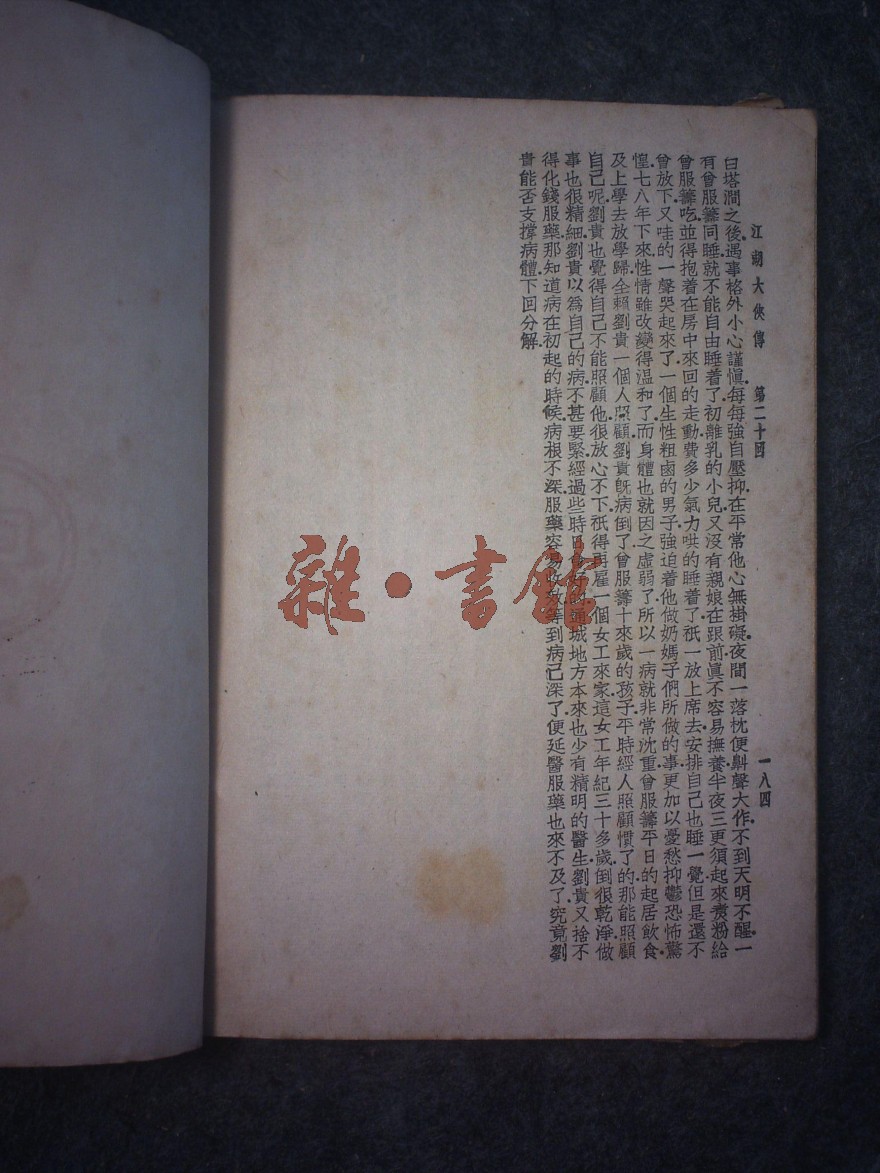 江湖大俠傳 第二十回 一八四
白塔澗之後.遇事格外小心謹愼.每每強自壓抑.在平常他心無掛礙.夜間一落枕便鼾聲大作.不到天明不醒.一
有曾服籌同睡.就不能自由睡着了.初離乳的小兒.又沒有親娘在跟前.眞不容易撫養.半夜三更須起來煑粉給
曾服籌吃.並得抱着在房中來回的走動.費多少氣力哄的睡着了.祇一放上席去.安排自己也睡一覺.但是還不
曾放下.又哇的一聲哭起來了.一個生性粗鹵的男子.強迫着他做奶媽子們所做的事.更加以憂愁抑鬱恐怖驚
惶.七八年下來.性情雖改變得溫和了.而身體也就因之虛弱了.所以一病就非常沈重.曾服籌平日的起居飲食.
及上學去放學歸.全賴劉貴一個人照顧.劉貴旣病倒了.曾服籌十來歲的孩子.平時經人照顧慣了的.那能照顧
自己呢.劉貴也覺得自己不能照顧他.很放心不下.祇得再雇一個女工來家.這女工年紀三十多歲.倒很乾淨.做
事也很精細.劉貴以爲自己的病.不甚要緊.經過些時日 城地方.本來也少有精明的醫生.劉貴又捨不
得化錢服藥.那知道病在初起的時候.病根不深.服藥容易收效.等到病已深了.便延醫服藥也來不及了.究竟劉
貴能否支撐病體.下回分解.
雜·書館